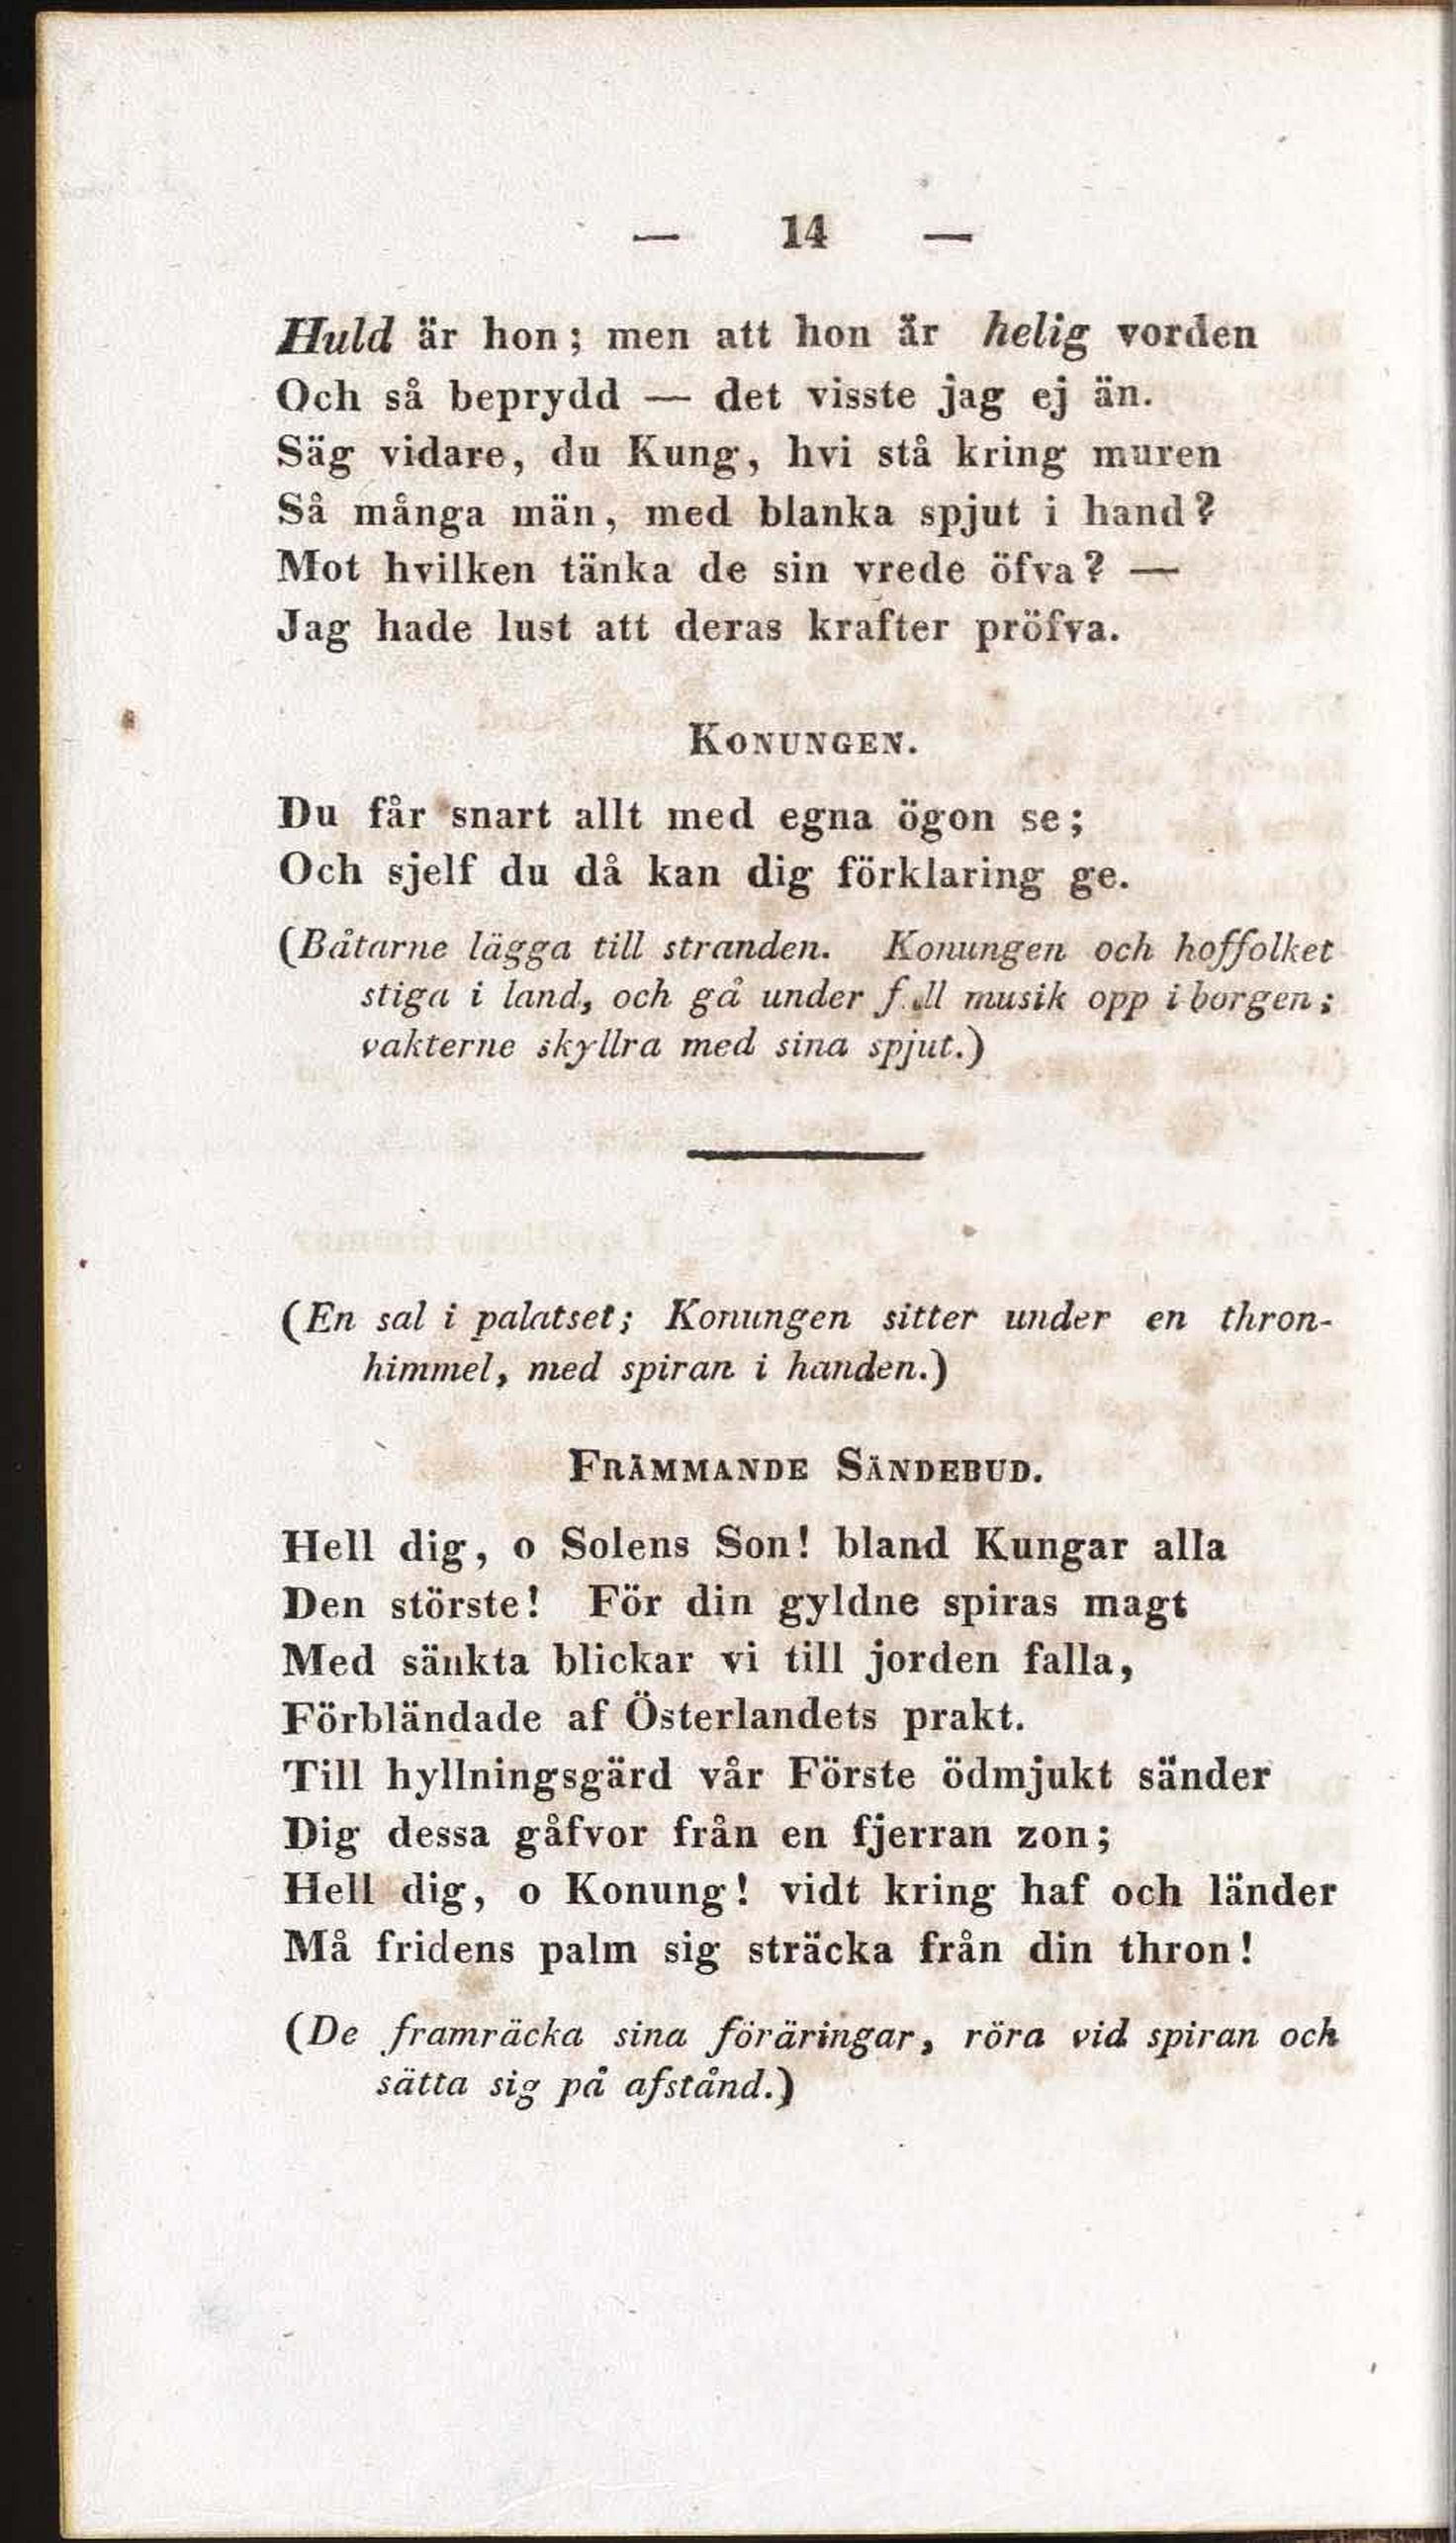 — 14 —
Huld är hon; men att hon är helig vorden
Och så beprydd — det visste jag ej än.
Säg vidare, du Kung, hvi stå kring muren
Så många män, med blanka spjut i hand?
Mot hvilken tänka de sin vrede öfva? —
Jag hade lust att deras krafter pröfva.
KONUNGEN.
Du får snart allt med egna ögon se;
Och sjelf du då kan dig förklaring ge.
(Båtarne lägga till stranden. Konungen och hoffolket
stiga i land, och gå under musik opp i borgen;
vakterne skyllra med sina spjut.)
(En sal i palatset; Konungen sitter under en thron-
himmel, med spiran i handen.)
FRÄMMANDE SÄNDEBUD.
Hell dig, o Solens Son! bland Kungar alla
Den störste! För din gyldne spiras magt
Med sänkta blickar vi till jorden falla,
Förbländade af Österlandets prakt.
Till hyllningsgärd vår Förste ödmjukt sänder
Dig dessa gåfvor från en fjerran zon;
Hell dig, o Konung! vidt kring haf och länder
Må fridens palm sig sträcka från din thron!
(De framräcka sina föräringar, röra vid spiran och
sätta sig på afstånd.)